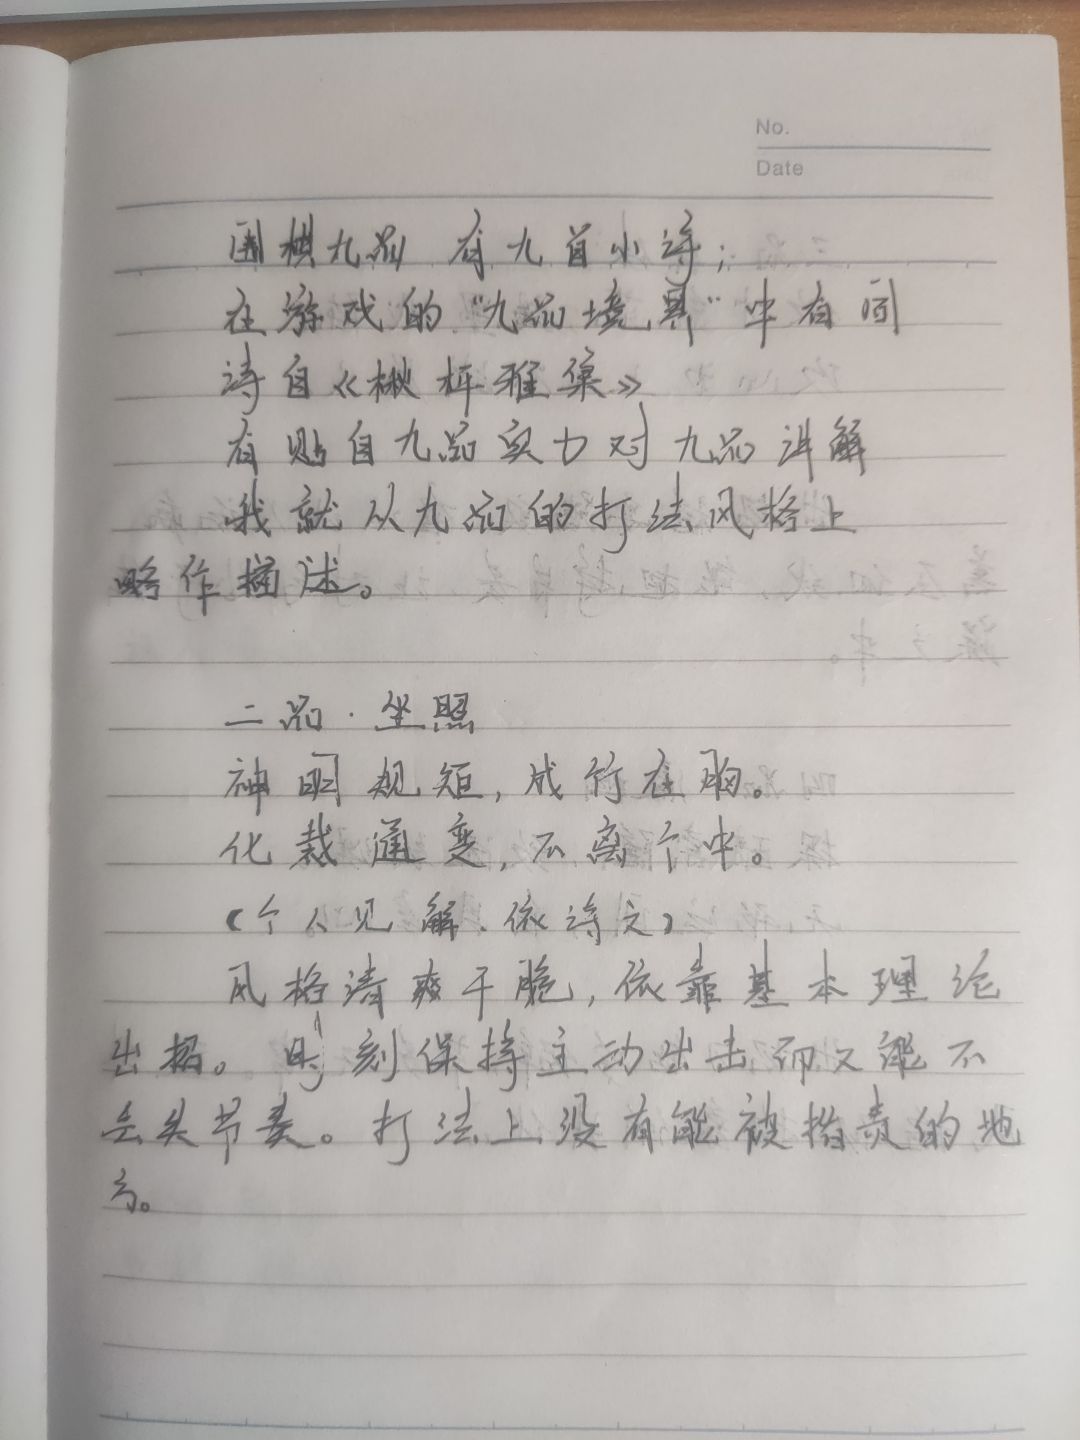 No.
Date
围棋九品 有九首小诗；
在游戏的“九品境界”中有同
诗自《楸枰雅集》
有贴自九品实力对九品讲解
我就从九品的打法风格上
略作描述。
二品·坐照
神明规矩，成竹在胸。
化裁通变，不离个中。
（个人见解、依诗文）
风格清爽干脆，依靠基本理论
出招。时刻保持主动出击而又能不
丢失节奏。打法上没有能被指责的地
方。